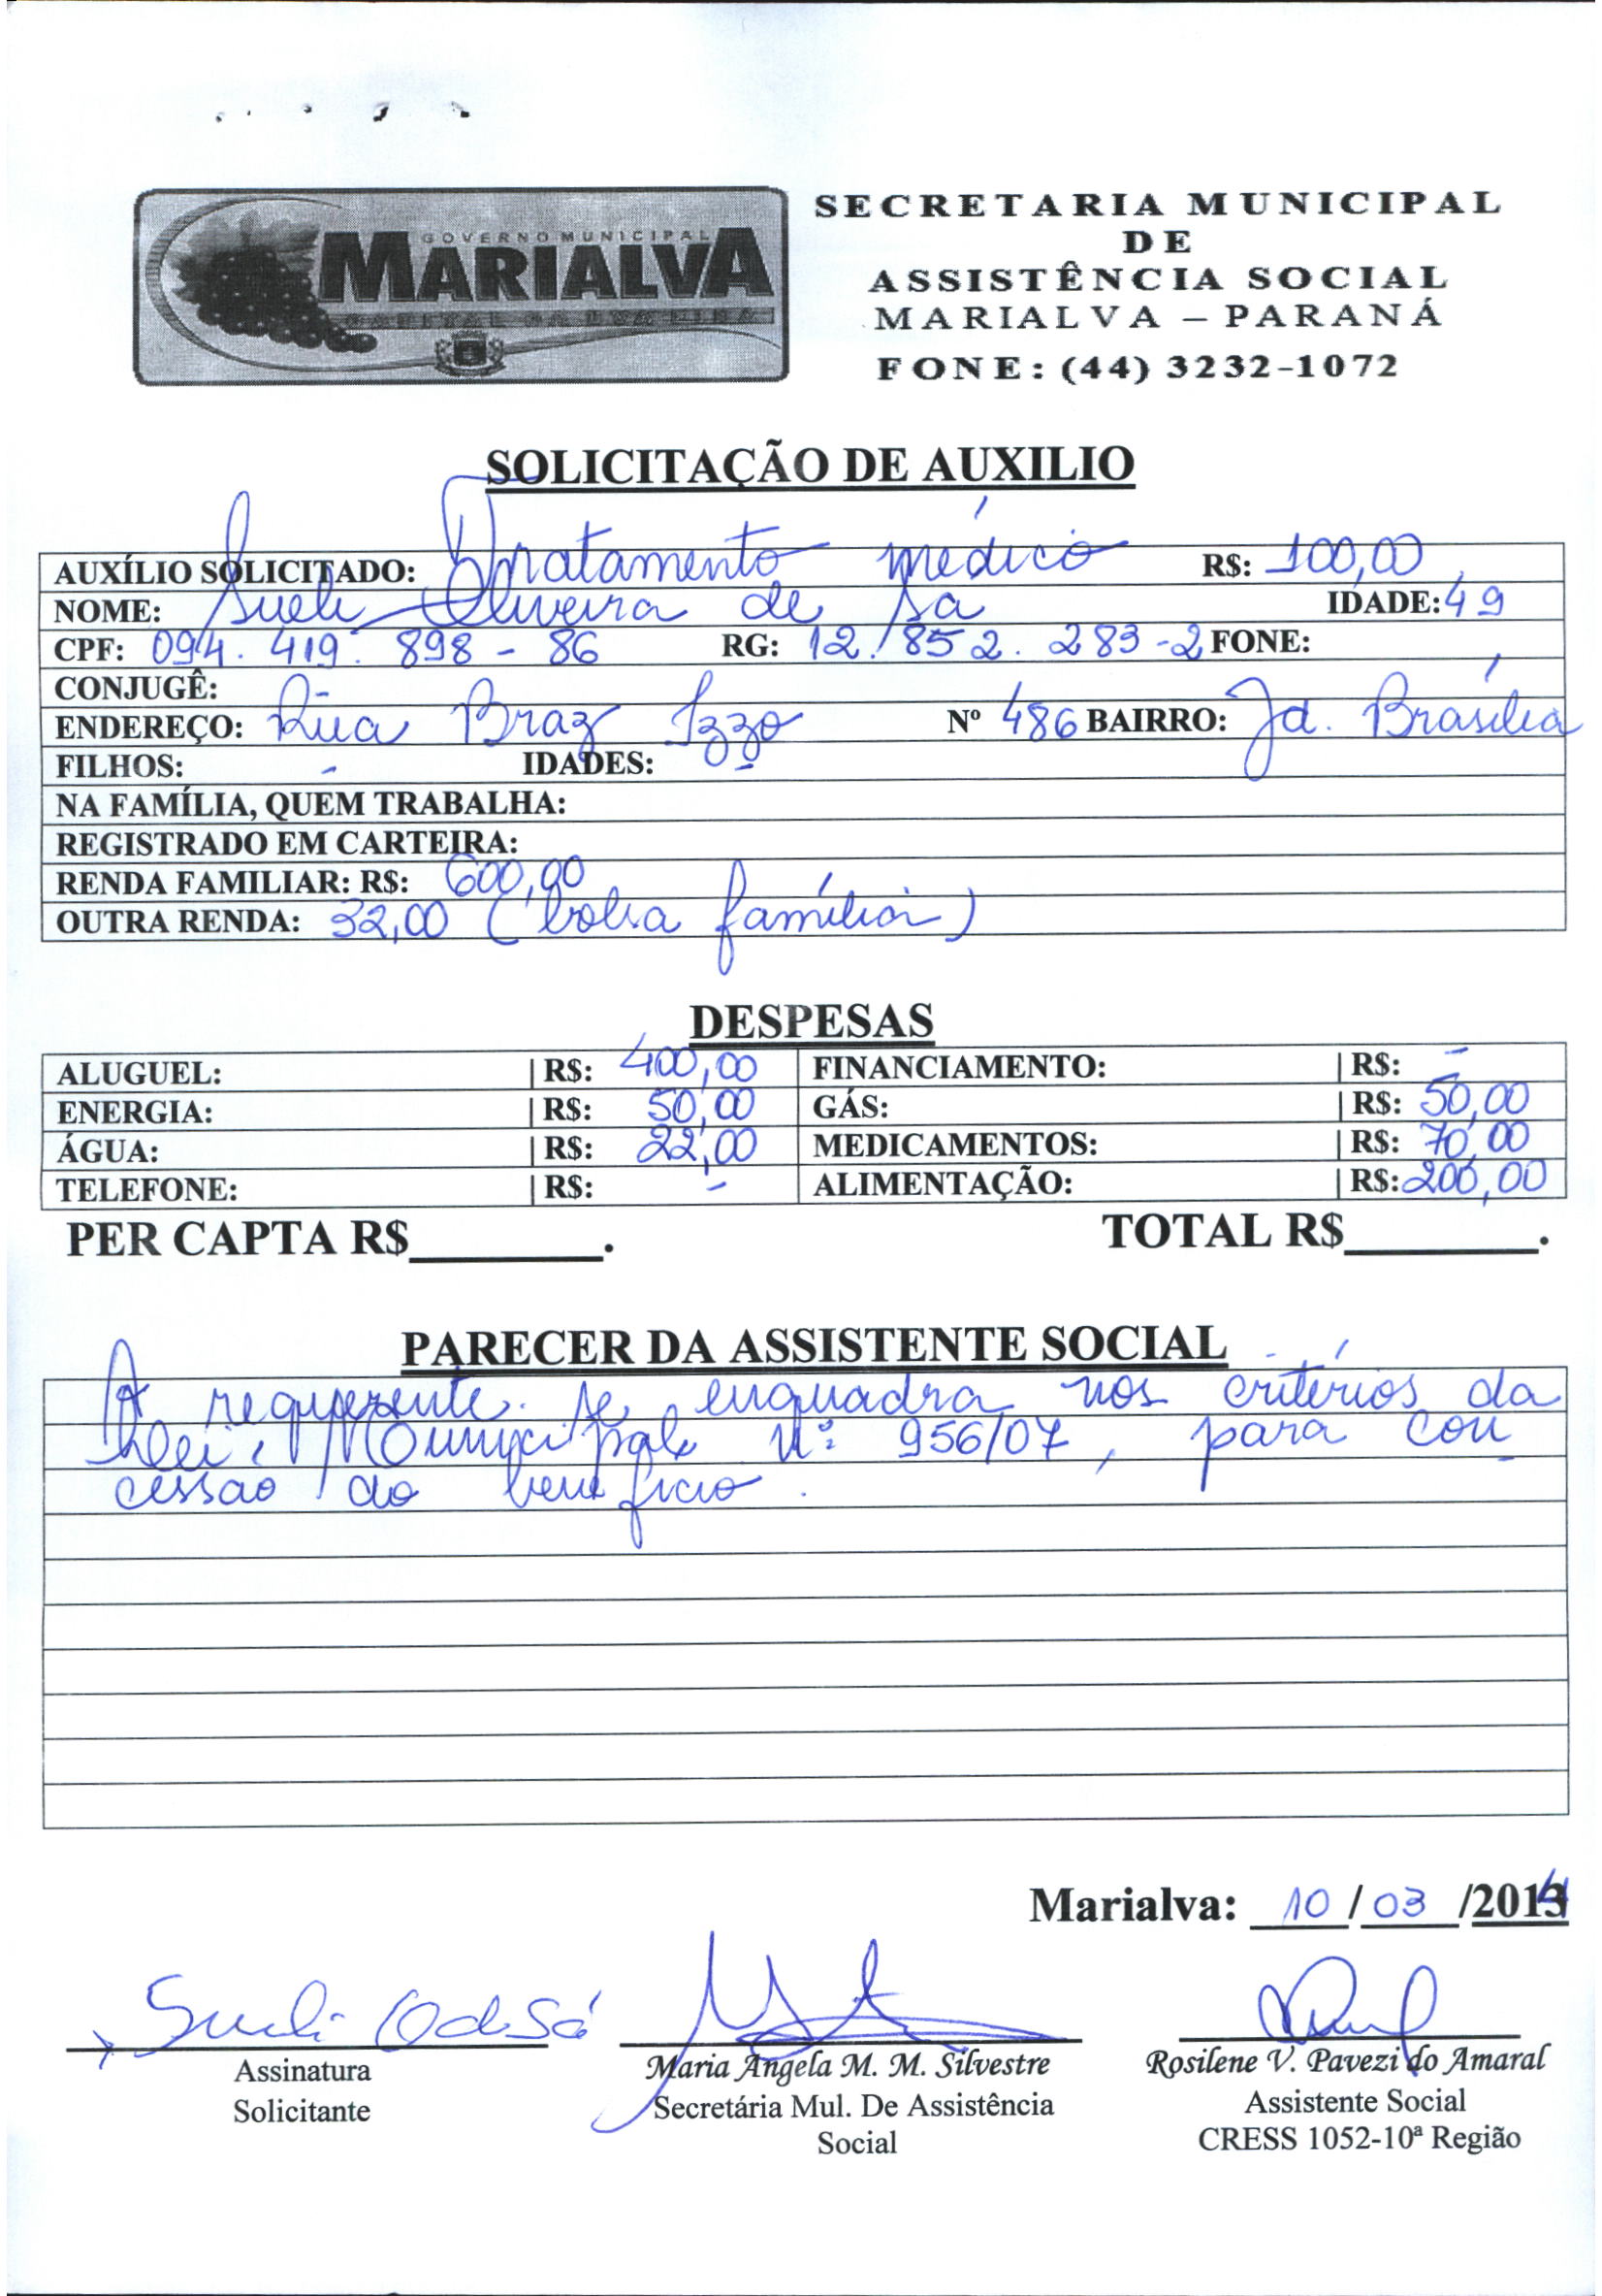 GOVERNO MUNICIPAL
MARIALVA
CAPITAL DA UVA FINA
SECRETARIA MUNICIPAL
DE
ASSISTÊNCIA SOCIAL
MARIALVA – PARANÁ
FONE: (44) 3232-1072
SOLICITAÇÃO DE AUXILIO
AUXÍLIO SOLICITADO: Tratamento médico R$: 100,00
NOME: Sueli Oliveira de Sa IDADE: 49
CPF: 094.419.898-86 RG: 12.852.283-2 FONE:
CONJUGÊ: -
ENDEREÇO: Rua Braz Izzo Nº 486 BAIRRO: Jd. Brasília
FILHOS: - IDADES: -
NA FAMÍLIA, QUEM TRABALHA:
REGISTRADO EM CARTEIRA:
RENDA FAMILIAR: R$: 600,00
OUTRA RENDA: 32,00 (bolsa família)
DESPESAS
ALUGUEL: | R$: 400,00 FINANCIAMENTO: | R$: -
ENERGIA: | R$: 50,00 GÁS: | R$: 50,00
ÁGUA: | R$: 22,00 MEDICAMENTOS: | R$: 70,00
TELEFONE: | R$: - ALIMENTAÇÃO: | R$: 200,00
PER CAPTA R$________. TOTAL R$________.
PARECER DA ASSISTENTE SOCIAL
A requerente se enquadra nos critérios da
Lei Municipal Nº 956/07, para con
cessão do benefício.
Marialva: 10/03/2014
Sueli O de Sá
Assinatura
Solicitante
Maria Ângela M. M. Silvestre
Secretária Mul. De Assistência
Social
Rosilene V. Pavezi do Amaral
Assistente Social
CRESS 1052-10ª Região